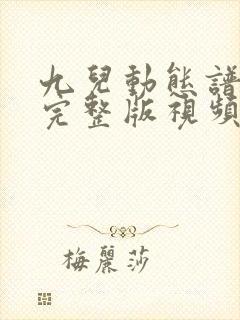 九兒動態譜
完整版視頻
梅麗莎